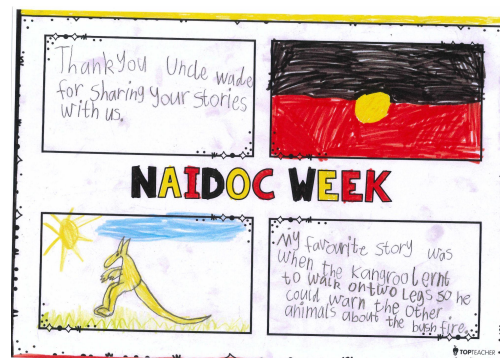 Thankyou Uncle wade
for sharing your stories
with us.
NAIDOC WEEK
My favourite story was
when the Kangaroo lernt
to walk on two Legs so he
could warn the other
animals about the bush fire.
TOPTEACHER